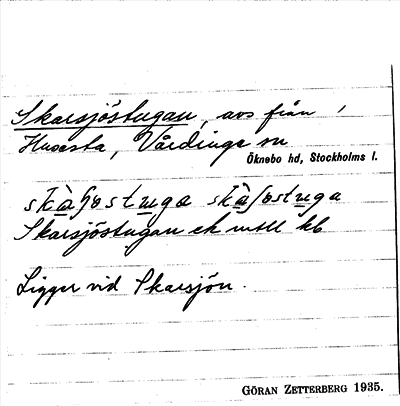 Skarsjöstugan, avs från
Husesta, Vårdinge sn
Öknebo hd, Stockholms l.
Skarsjöstugan ek mtll kb
Ligger vid Skarsjön.
GÖRAN ZETTERBERG 1935.